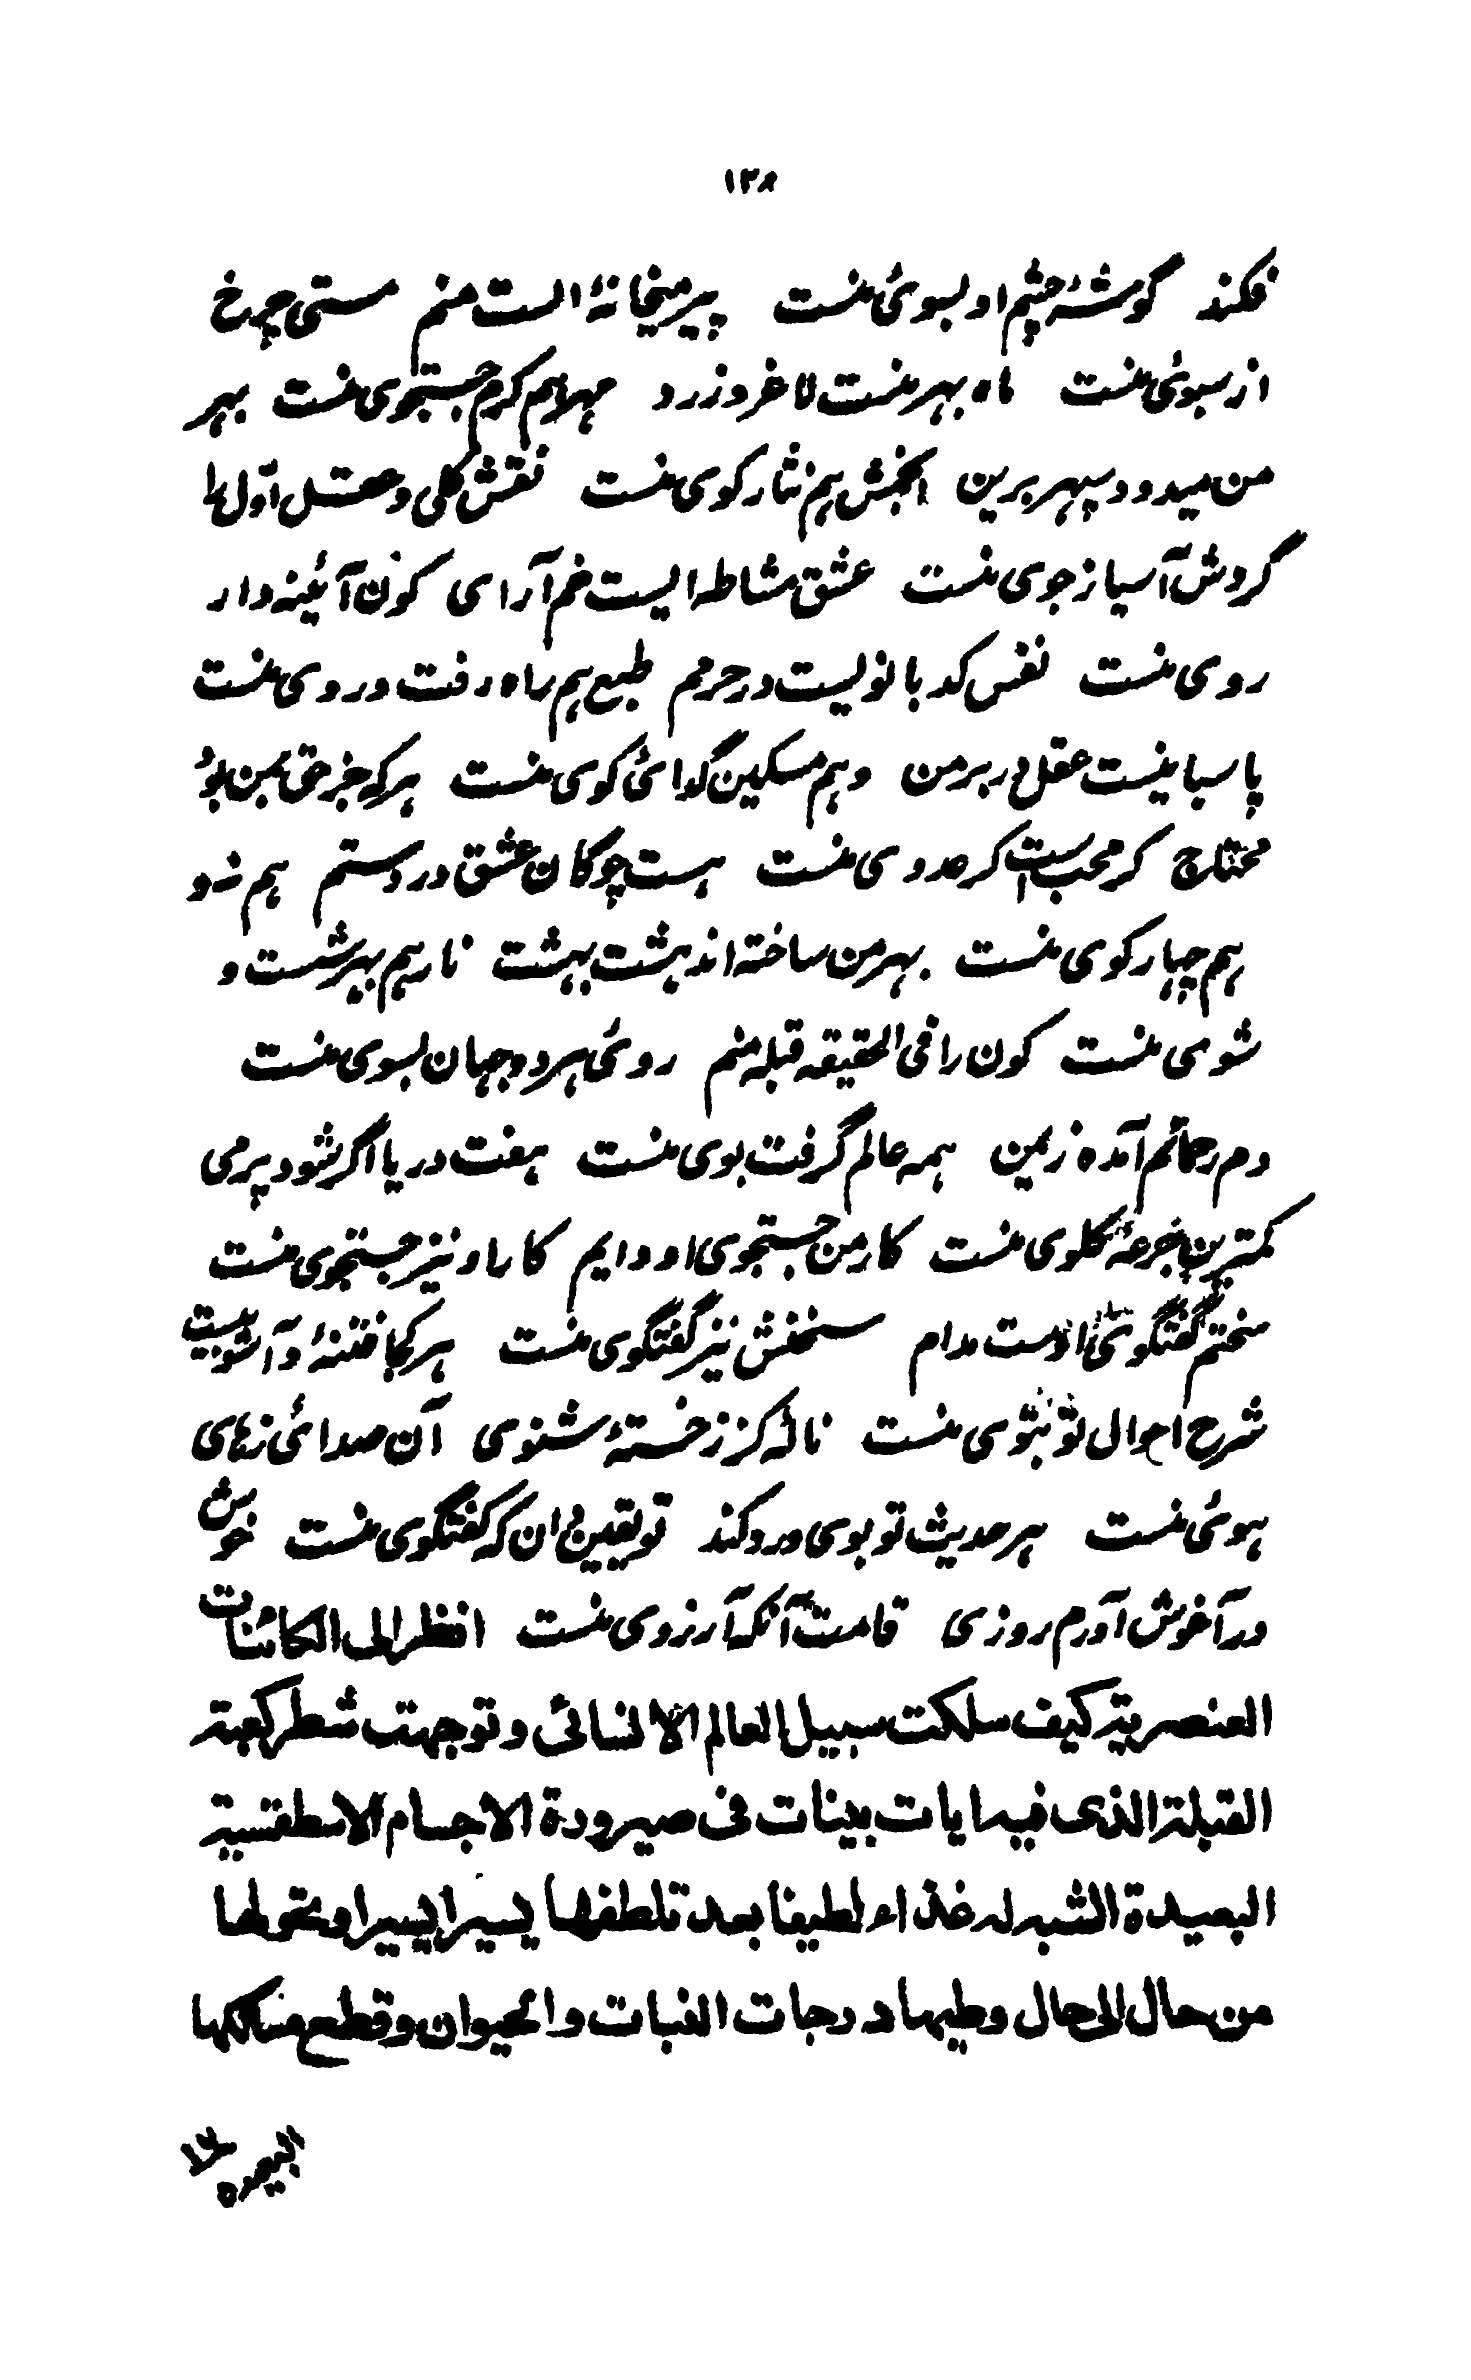 ۱۳۸
فکند گوشهٔ چشم او بسوئ منست پیر میخانهٔ الست منم مستی چرخ
از سبوئ منست ماه بهر منست لاغر و زرد مهر هم گرم جستجوی منست بهر
من میدود سپهر برین انجمش هم نثار کوی منست نقش کلی و عقل اوّل را
گردش آسیا ز جوی منست عشق مشاطه ایست خم آرای کون آئینه دار
روی منست نفس کدبانولیست در حرمم طبع هم راه رفت و روی منست
پاسبانیست عقل در بر من وهم مسکین گدائ کوی منست هر که جز حق بمن بود
محتاج گر محب است گر عدوی منست هست چوگان عشق در دستم هم نه و
هم چهار کوی منست بهر من ساخته اند هشت بهشت نار هم بهر شست و
شوی منست کون را فی الحقیقه قبله منم روئ هر دو جهان بسوی منست
دم رحمانم آمده ز یمن همه عالم گرفت بوی منست هفت دریا اگر شود پر می
کمترین جرعهٔ گلوی منست کار من جستجوی او دایم کار او نیز جستجوی منست
سخنم گفتگوئ اوست مدام سخنش نیز گفتگوی منست هر کجا فتنهٔ و آشوبیست
شرح احوال تو بتوی منست نالهٔ کز ز خستهٔ شنوی آن صدائ ز های
هوئ منست هر حدیث تو بوی درد کند تو یقین دان که گفتگوی منست خوش
در آغوش آورم روزی قامت آنکه آرزوی منست انظر الی الکائنات
العنصریة کیف سلکت سبیل العالم الانسانی و توجهت شطر کعبة
القبلة الذی فیه ایات بینات فی صیرورة الاجسام الاسطقسیة
البعیدة الشبه له غذاء لطیفا بعد تلطفها یسیرا یسیرا و تحولها
من حال الی حال وطیها درجات النبات والحیوان وقطع مسالکها
البعیدة